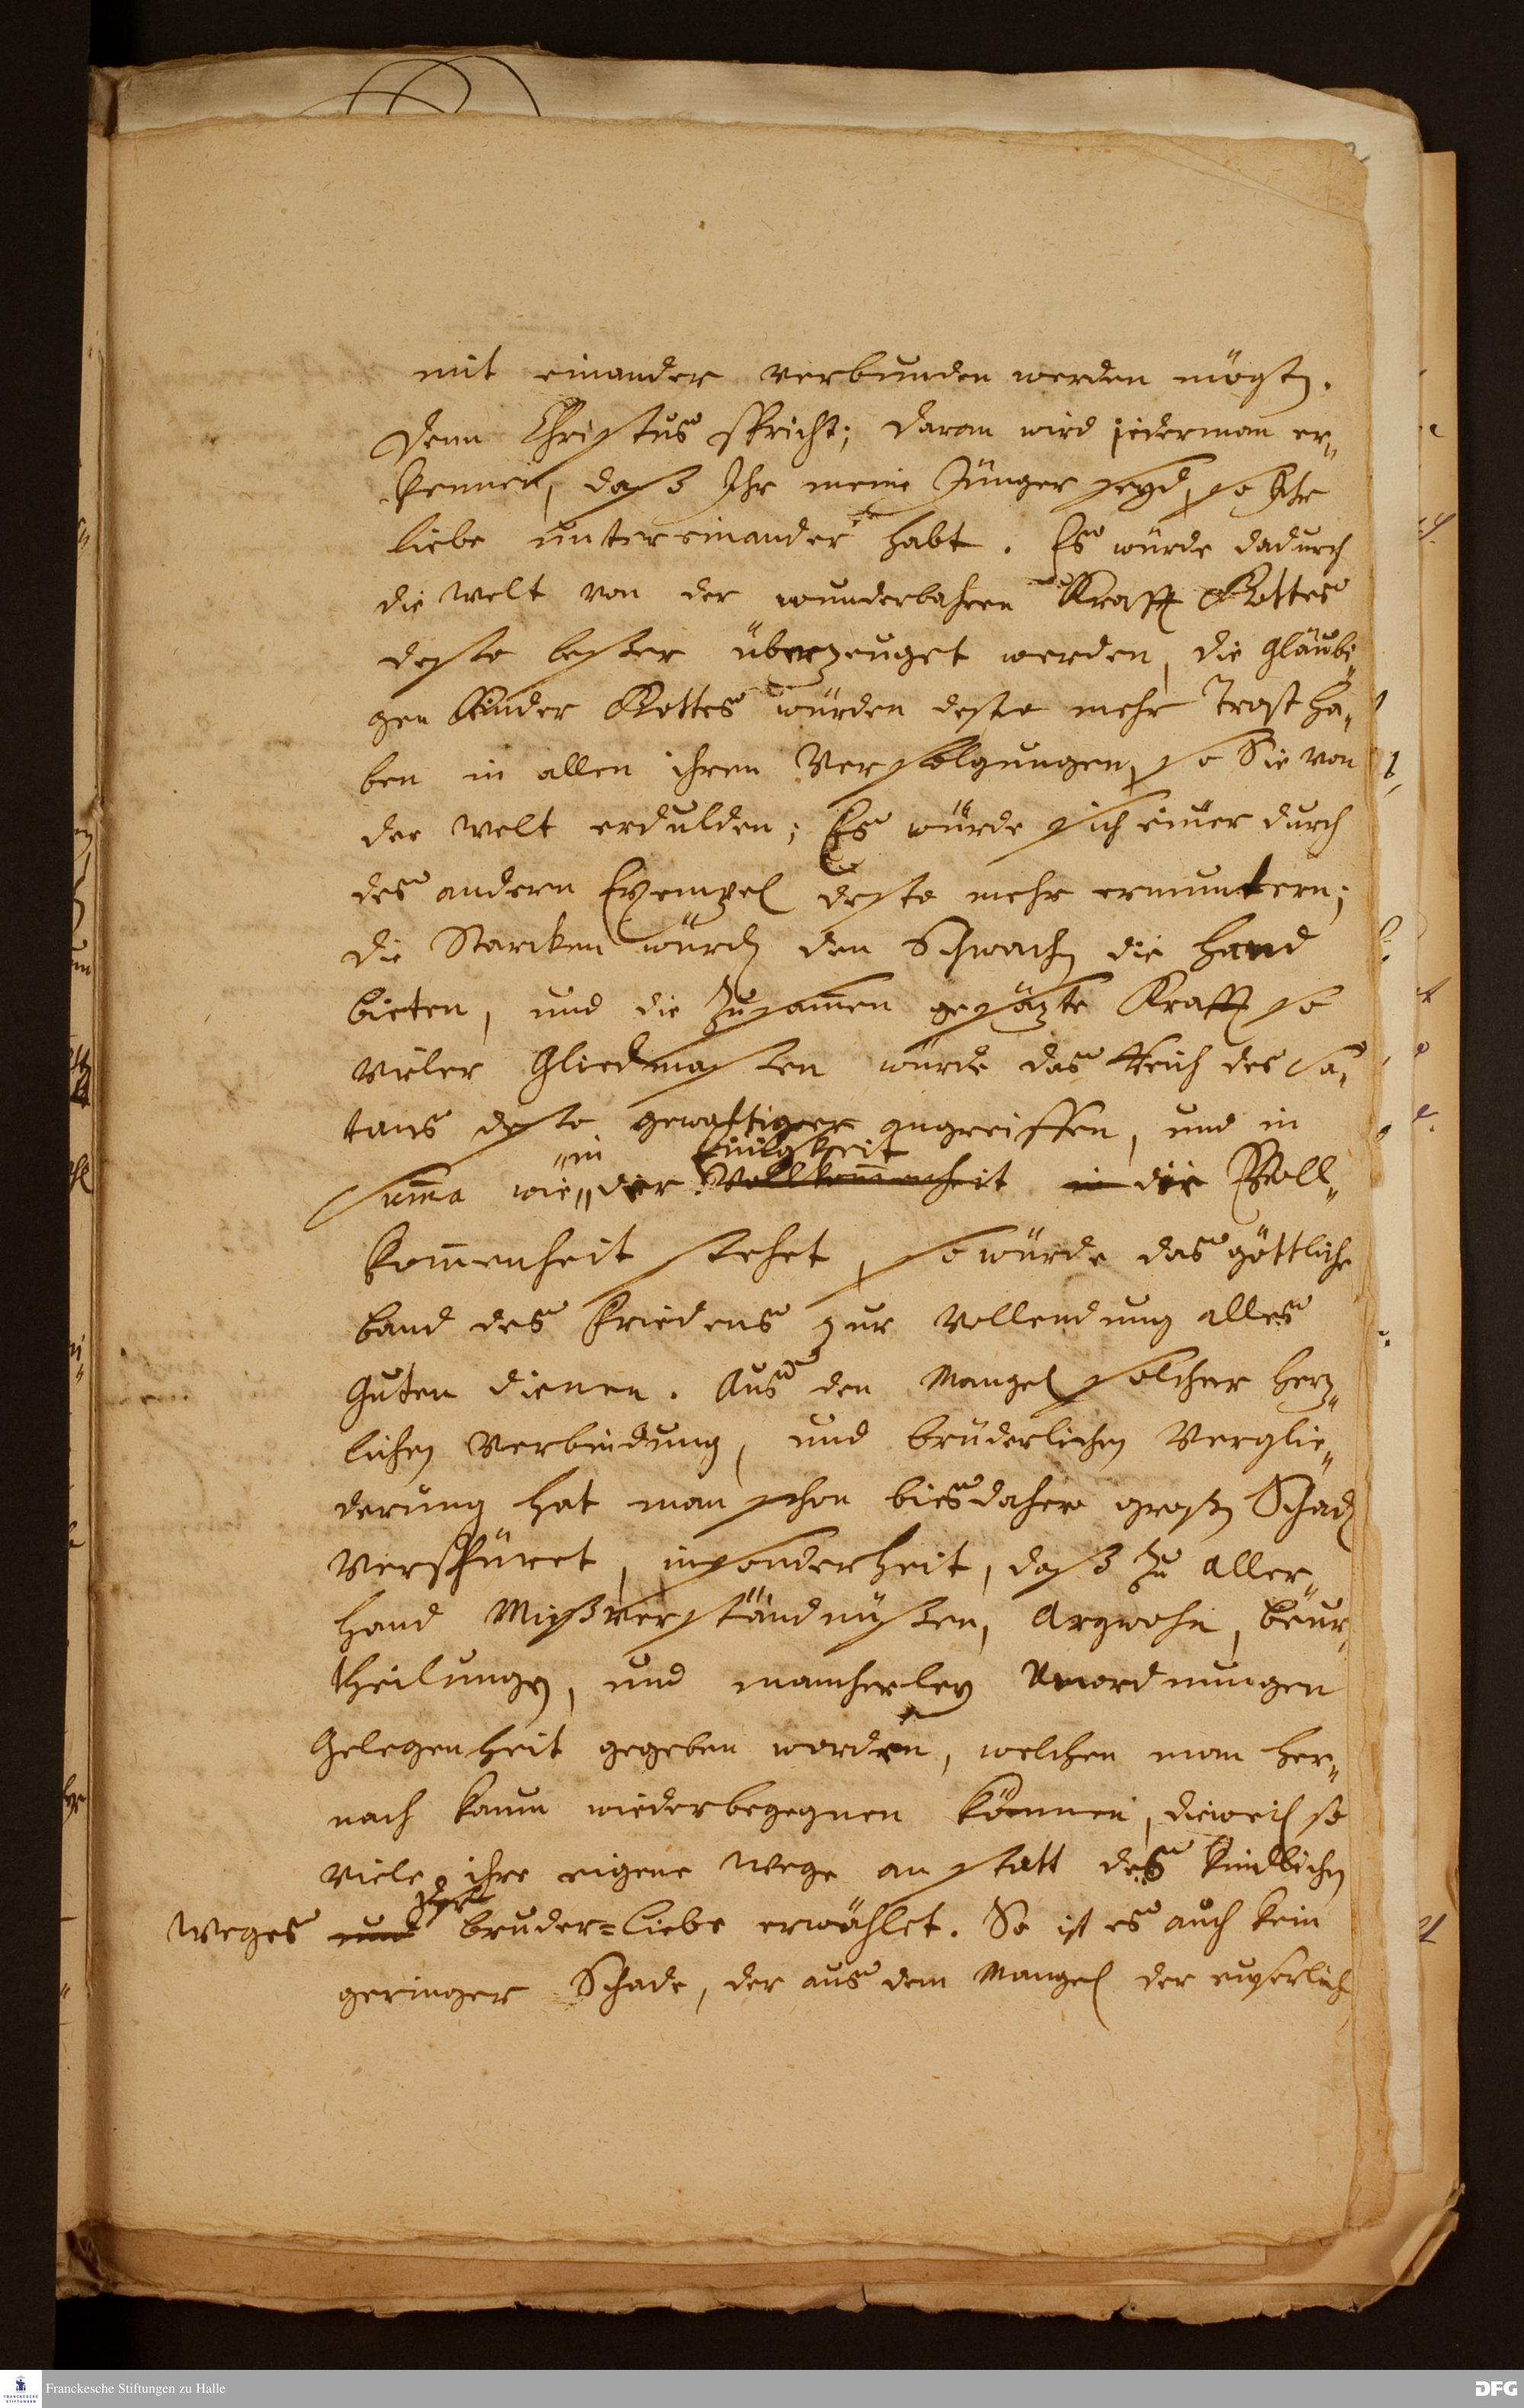 mit einander verbunden werden mögten.
Denn Christus spricht; daran wird jederman er„
kennen, daß Ihr meine Jünger seyd, so Ihr
Liebe untereinander habt. Es würde dadurch
die Welt von der wunderbahren Krafft Gottes
desto besser überzeuget werden, die Gläubi„
gen Kinder Gottes würden desto mehr Trost ha„
ben in allen ihren Verfolgungen, so Sie von
der Welt erdulden; Es würde sich einer durch
des andern Exempel desto mehr ermuntern;
die Starcken würden den Schwachen die Hand
bieten, und die zusam̅en gesäzte Krafft so
vieler Gliedmassen würde das Reich des Sa„
tans desto gewaltiger angreiffen, und in
„in Einigkeit
Sum̅a wie„ der Vollkom̅enheit in die Voll„
kom̅enheit stehet, so würde das göttliche
Band des Friedens zur Vollendung alles
Guten dienen. Aus den Mangel solcher Herz„
lichen Verbindung, und brüderlichen Verglie„
derung hat man schon biesdahero großen Schaden
verspüret, insonderheit, daß zu aller„
hand Mißverständnüssen, Argwohn, Beur„
theilungen, und mancherley Unordnungen
Gelegenheit gegeben worden, welchen man her„
nach kaum wiederbegegnen können, dieweil so
viele ihre eigene Wege an statt des kindlichen
der
Weges und Bruder=Liebe erwählet. So ist es auch kein
geringer Schade, der aus dem Mangel der euserlichen
Franckesche Stiftungen zu Halle
FRANCKESCHE STIFTUNGEN
DFG